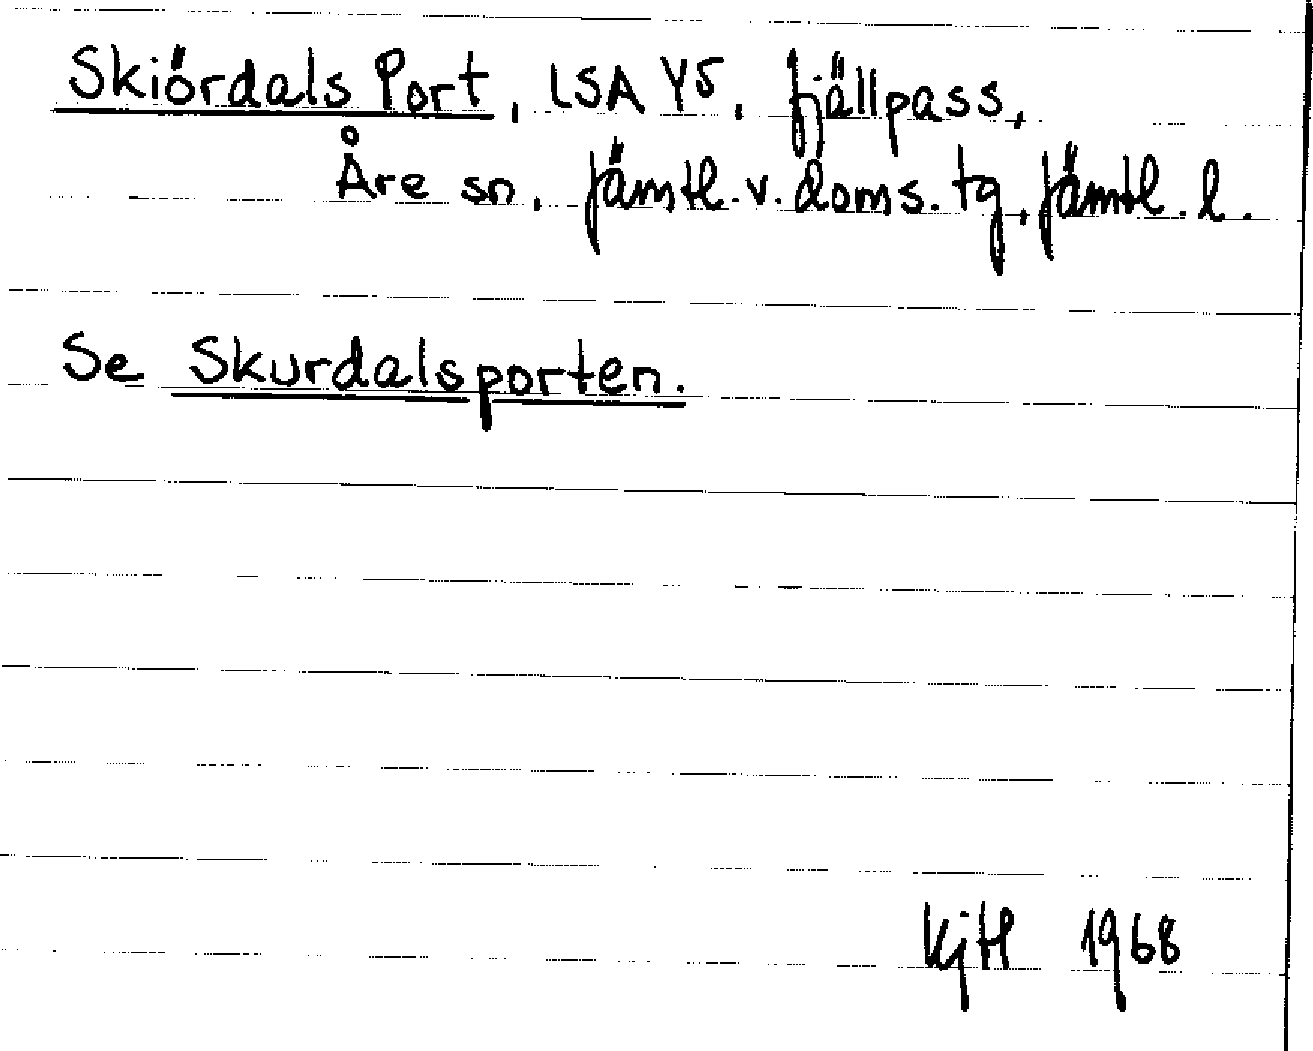 Skiördals Port, LSA Y5, fjällpass,
Åre sn, Jämtl. v. doms. tg, Jämtl. l.
Se Skurdalsporten.
KjH 1968